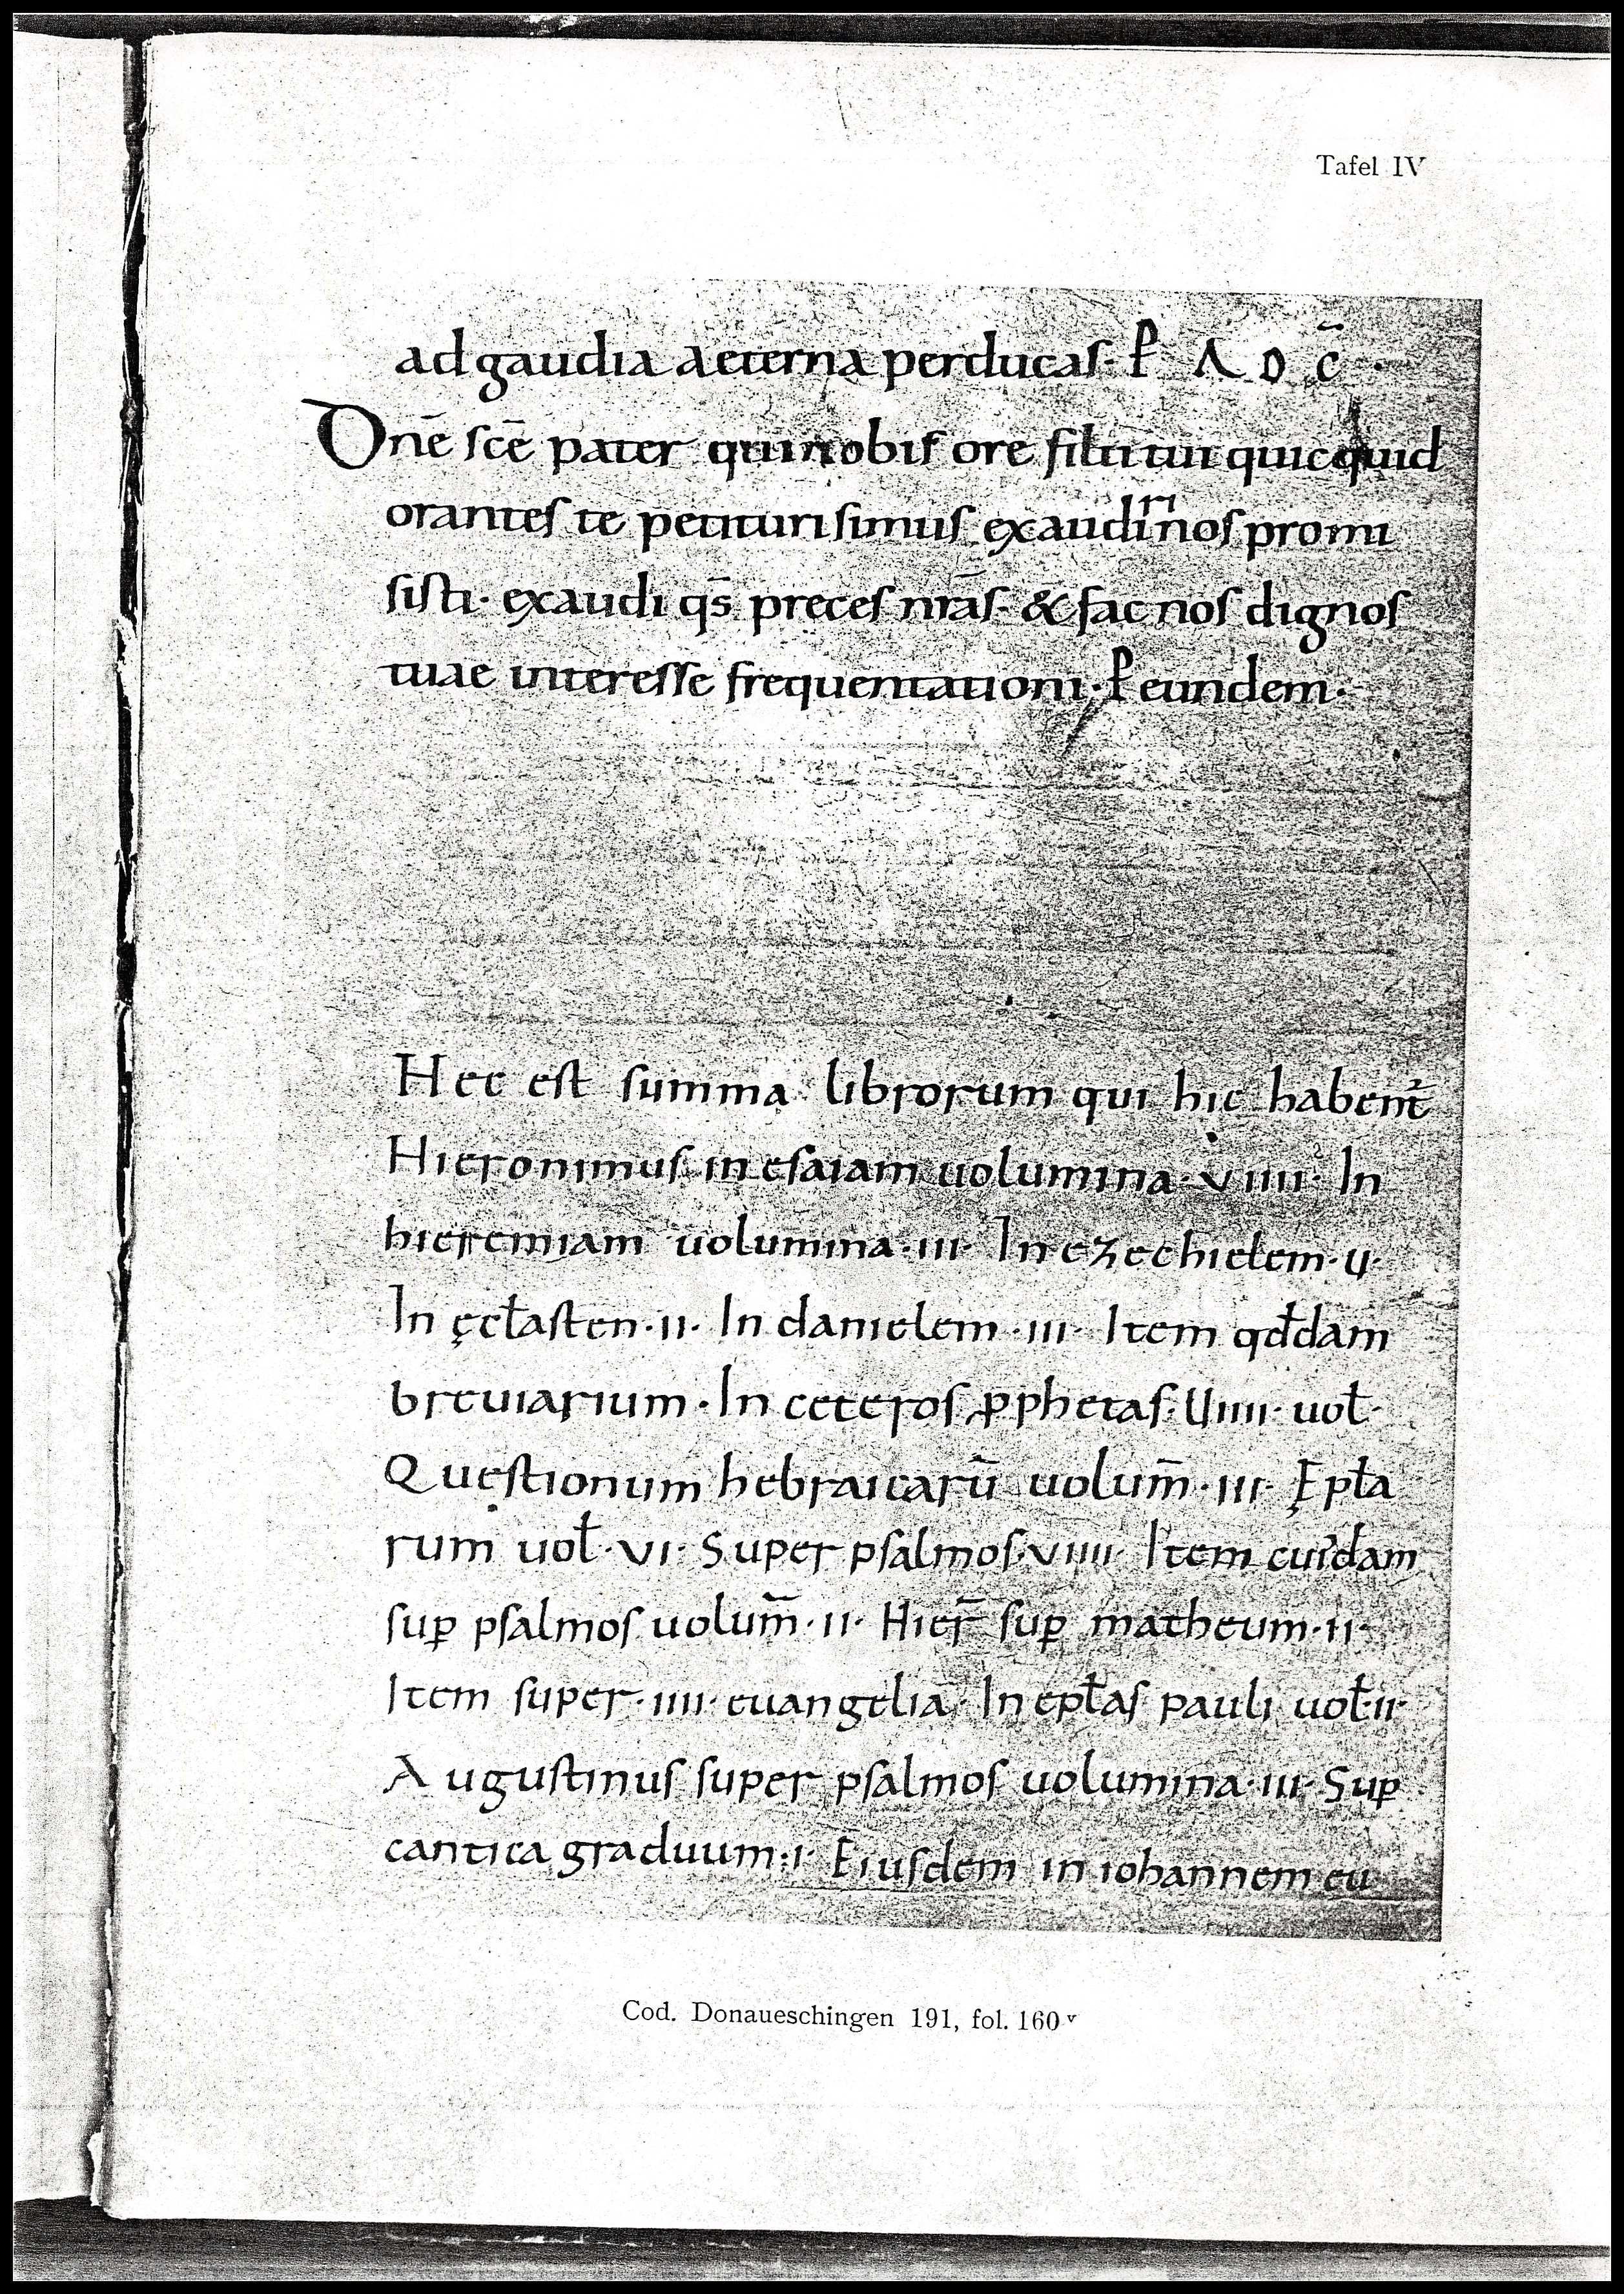 Tafel IV
ad gaudia aeterna perducas· ꝑ Λ D c̃ ·
Dnē scē pater qui nobis ore filii tui quicquid
orantes te petituri simus exaudiri nos promi
sisti· exaudi qs̄ preces nrās· & fac nos dignos
tuae interesse frequentationi· ꝑ eundem·
Hec est summa librorum qui hic habent̄
Hieronimus in esaiam uolumina· VIIII· In
hieremiam uolumina· III· In ezechielem· II·
In ęcl̄asten· II· In danielem· III· Item qd̄dam
breuiarium· In ceteros ꝓphetas· UIIII· uol̄·
Questionum hebraicarū uolum̄· III· Epl̄a
rum uol̄· VI· Super psalmos· VIIII· Item cuiꝰdam
suꝑ psalmos uolum̄· II· Hier̄ suꝑ matheum· II·
Item super· IIII· euangelia· In epl̄as pauli uol̄· II·
Augustinus super psalmos uolumina· III· Suꝑ
cantica graduum· I· Eiusdem in iohannem eu
Cod. Donaueschingen 191, fol. 160ᵛ